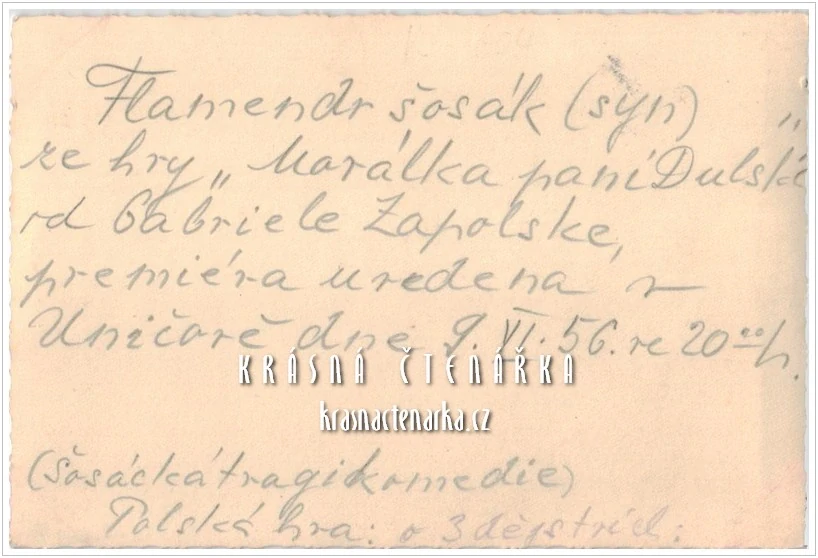 Flamendr šosák (syn)
ze hry „Morálka paní Dulské"
od Gabriele Zapolske,
premiéra uvedena v
Uničově dne 9. VI. 56. ve 20⁰⁰ h.
KRÁSNÁ ČTENÁŘKA
krasnactenarka.cz
(Šosácká tragikomedie)
Polská hra: o 3 dějstvích: